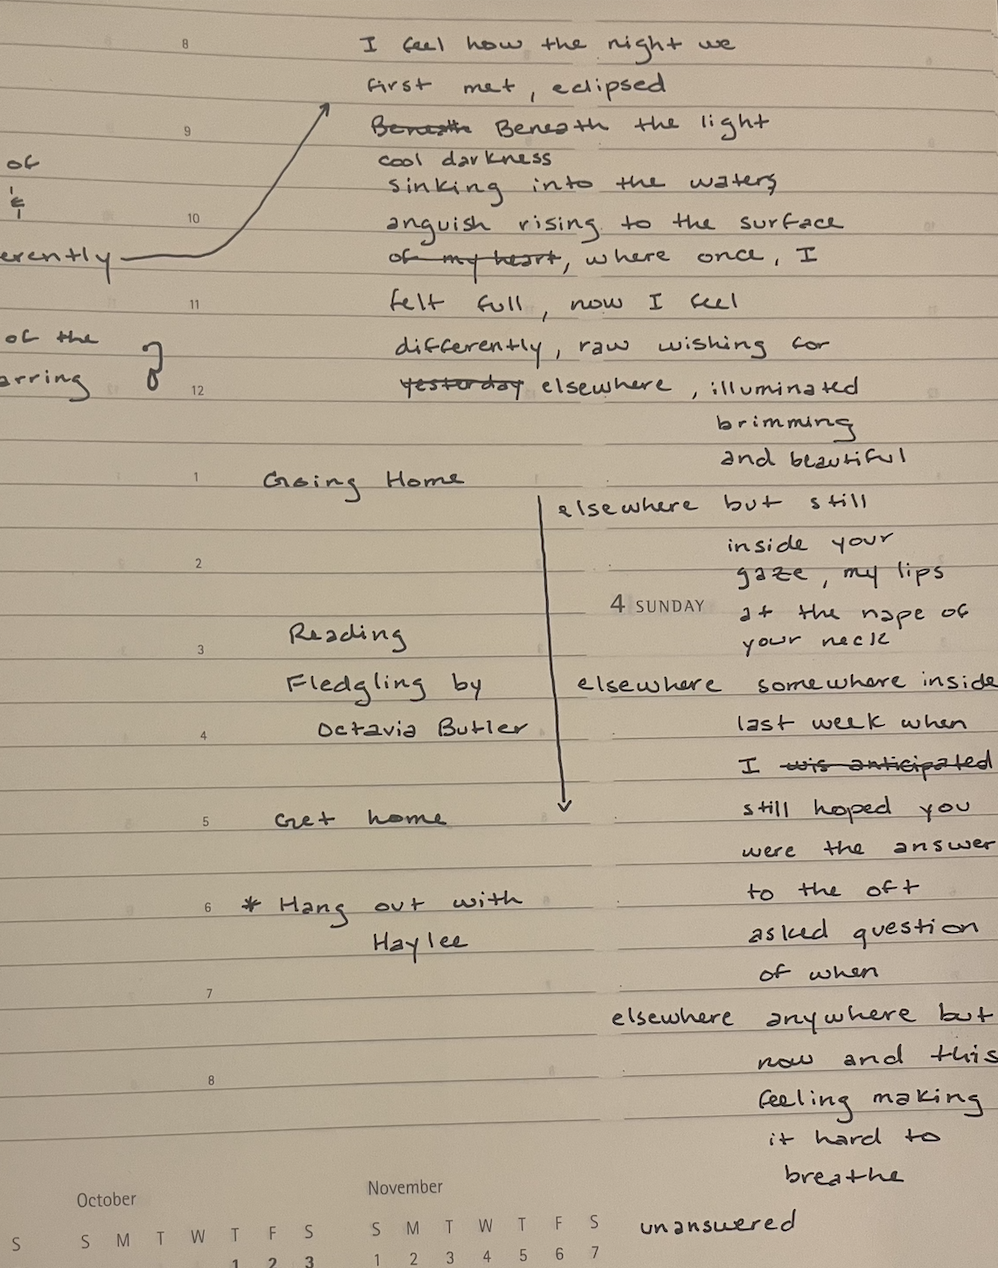 8
I feel how the night we
first met, eclipsed
9
Beneath Beneath the light
of
cool darkness
&
sinking into the waters,
10
anguish rising to the surface
erently
of my heart, where once, I
11
felt full, now I feel
of the
differently, raw wishing for
arring
12
yesterday elsewhere, illuminated
brimming
and beautiful
1 Going Home
elsewhere but still
inside your
2
gaze, my lips
4 SUNDAY
at the nape of
your neck
3 Reading
Fledgling by
elsewhere somewhere inside
4 Octavia Butler
last week when
I was anticipated
5 Get home
still hoped you
were the answer
6 * Hang out with
Haylee
to the oft
asked question
of when
7
elsewhere anywhere but
now and this
8
feeling making
it hard to
breathe
unanswered
October
November
S
S M T W T F S
S M T W T F S
1 2 3
1 2 3 4 5 6 7